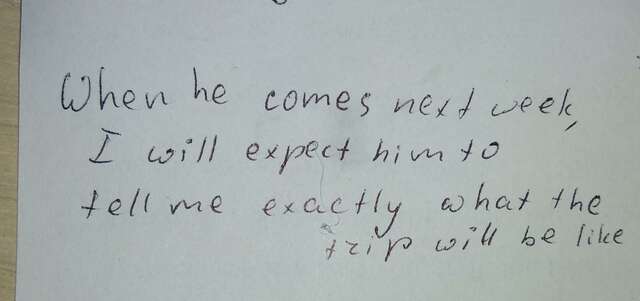 When he comes next week,
I will expect him to
tell me exactly what the
trip will be like